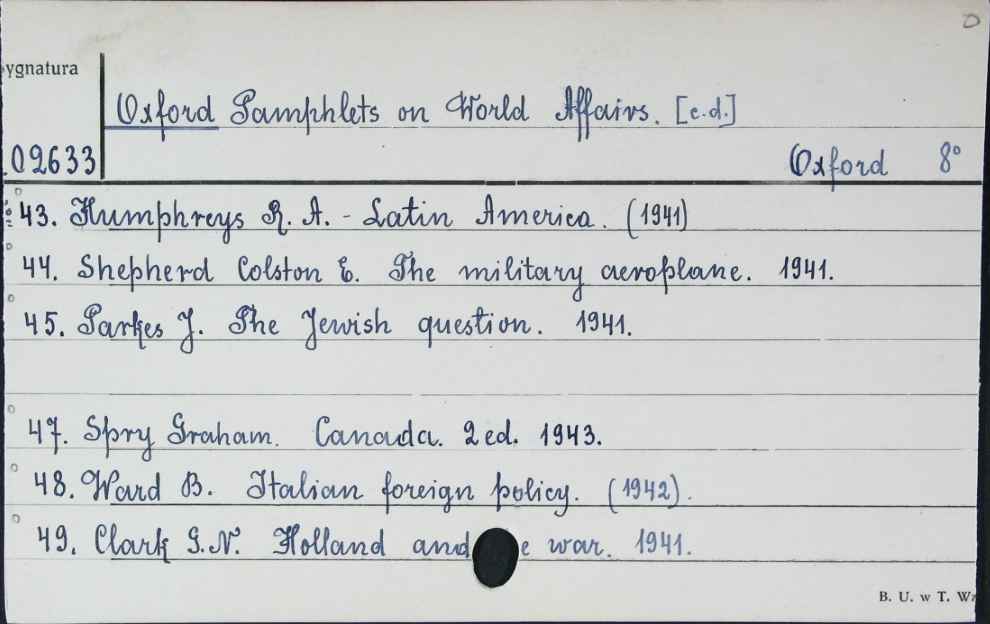 ygnatura
Oxford Pamphlets on World Affairs. [c.d.]
02633
Oxford 8°
43. Humphreys R. A. - Latin America. (1941)
44. Shepherd Colston E. The military aeroplane. 1941.
45. Parkes J. The Jewish question. 1941.
47. Spry Graham. Canada. 2 ed. 1943.
48. Ward B. Italian foreign policy. (1942).
49. Clark G.N. Holland and e war. 1941.
B. U. w T. W